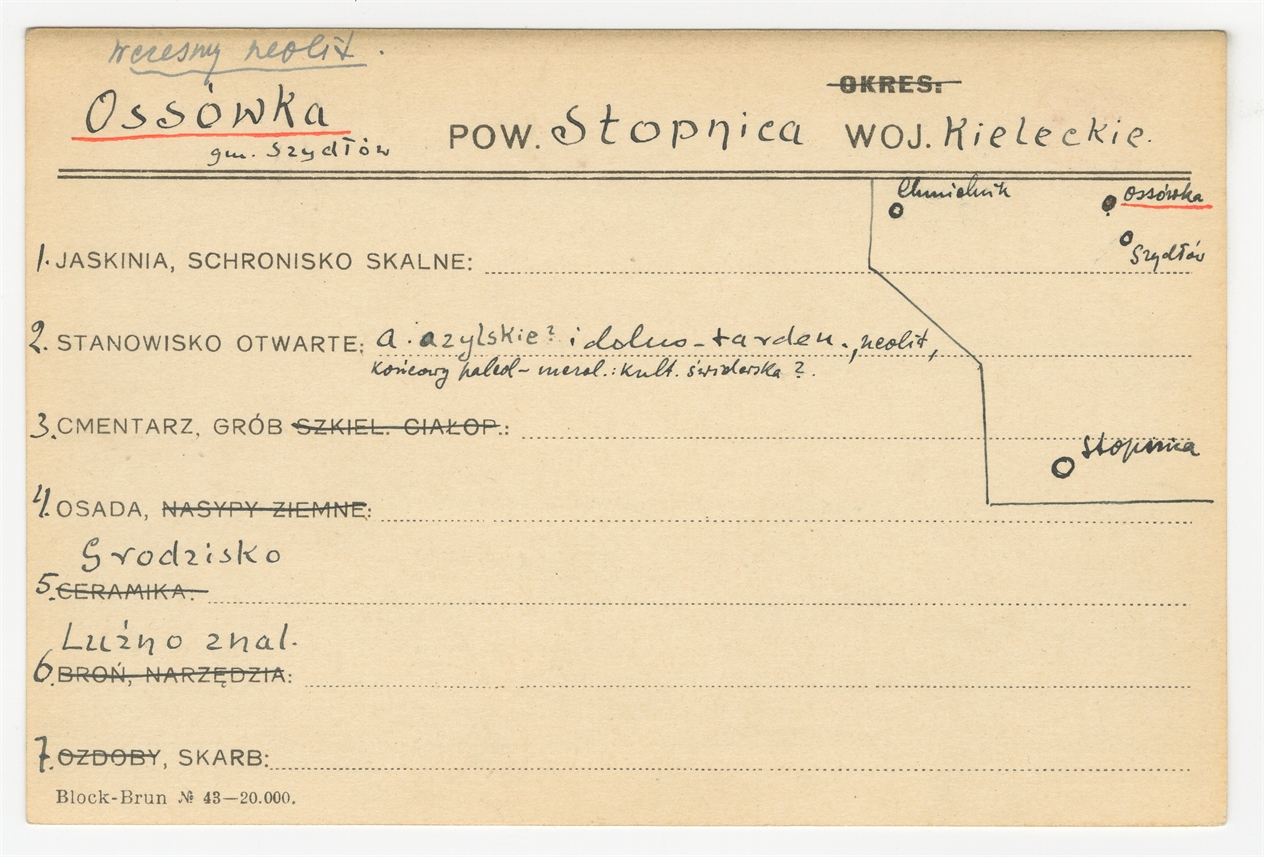 wczesny neolit.
OKRES:
Ossówka POW. Stopnica WOJ. Kieleckie.
gm. Szydłów
Chmielnik
Ossówka
Szydłów
1. JASKINIA, SCHRONISKO SKALNE:
2. STANOWISKO OTWARTE: a. azylskie? i dolno-tarden., neolit,
końcowy paleol-mezol.: kult. świderska?.
3. CMENTARZ, GRÓB SZKIEL. CIAŁOP.:
Stopnica
4. OSADA, NASYPY ZIEMNE:
Grodzisko
5. CERAMIKA:
Luźno znal.
6. BROŃ, NARZĘDZIA:
7. OZDOBY, SKARB:
Block-Brun № 43—20.000.